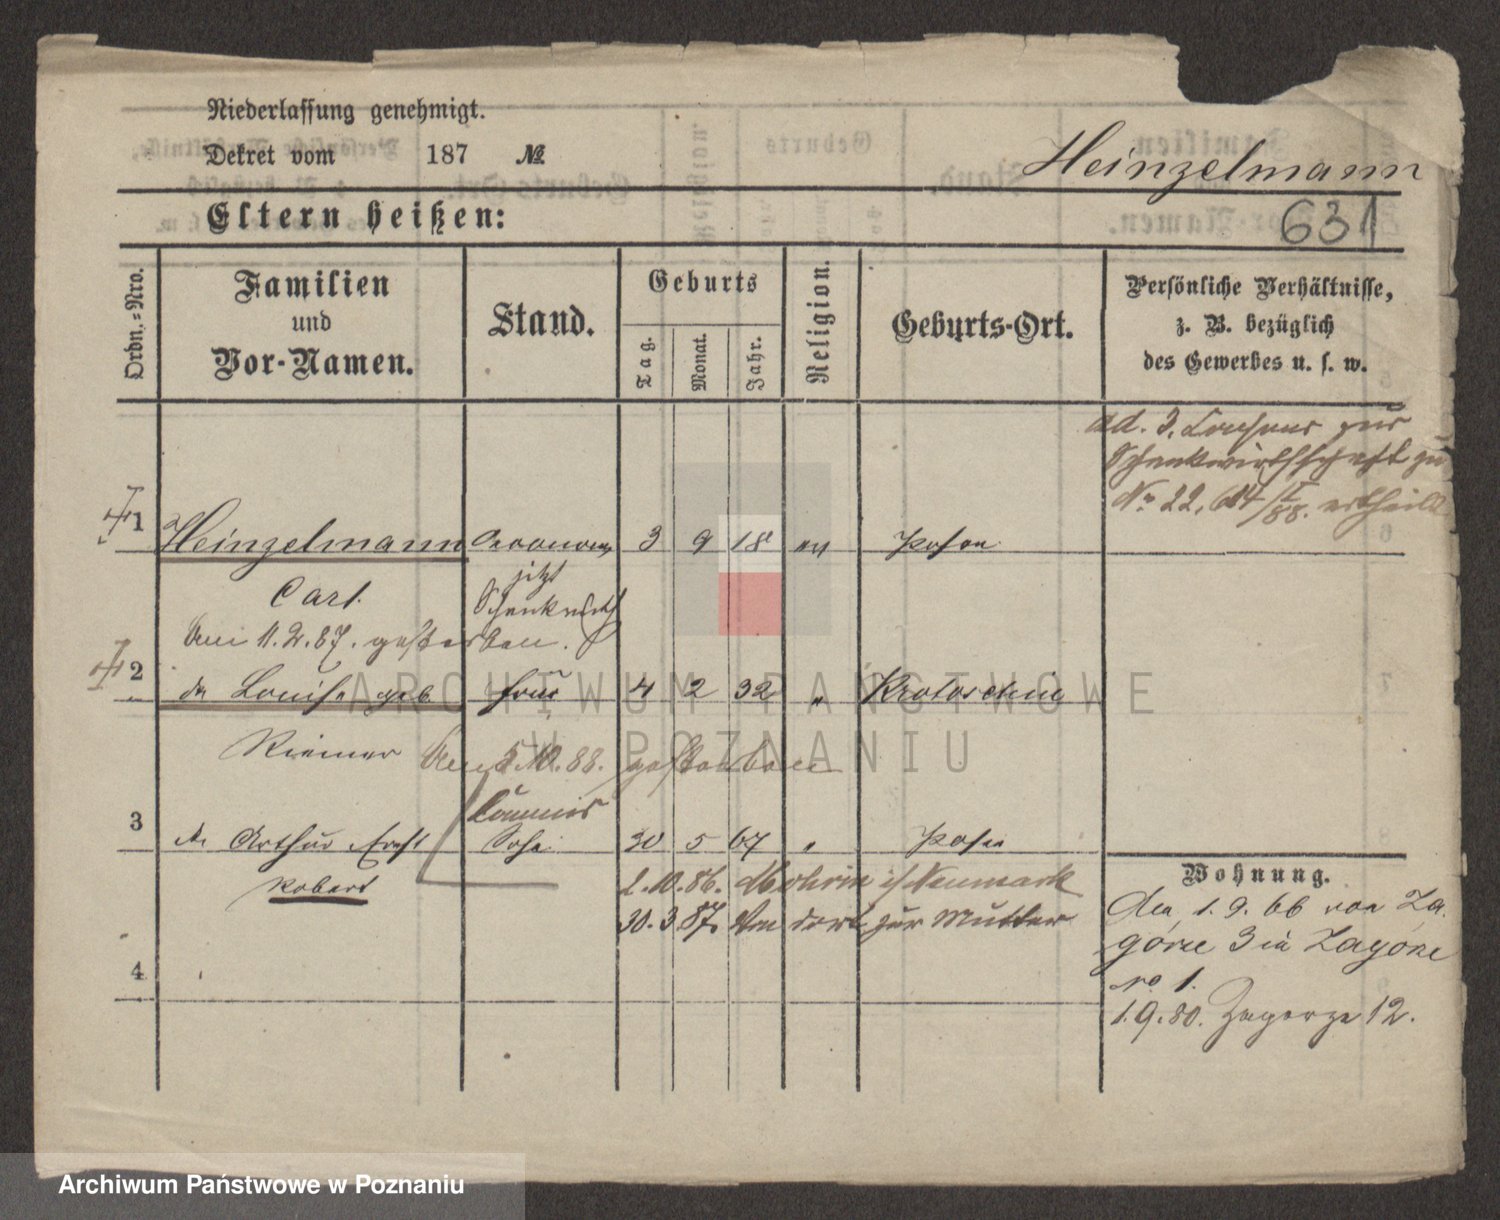 Niederlassung genehmigt.
Dekret vom 187 №
Heinzelmann
Eltern heißen:
631
Ordn.-Nro.
Familien
und
Vor-Namen.
Stand.
Geburts
Tag.
Monat.
Jahr.
Religion.
Geburts-Ort.
Persönliche Verhältnisse,
z. B. bezüglich
des Gewerbes u. s. w.
ad. 3. Consens zur
Schankwirthschaft zu
No 22, ertheilt
1 Heinzelmann 3 9 18 ev Posen
jetzt
Carl Schankwirth
Am 11.2.87. gestorben.
2 do Louise geb Frau 4 2 32 " Krotoschin
Riemer Am 5.10.88. gestorben
Commis
3 do Arthur Ernst Sohn 30 5 67 " Posen
Robert
2.10.86. Mohrin i/ Neumark
30.3.87. Von dort zur Mutter
4
Wohnung.
den 1.9.66 von Za
górze 3 in Zagórze
no 1.
1.9.80. Zagorze 12.
ARCHIWUM PAŃSTWOWE
W POZNANIU
Archiwum Państwowe w Poznaniu